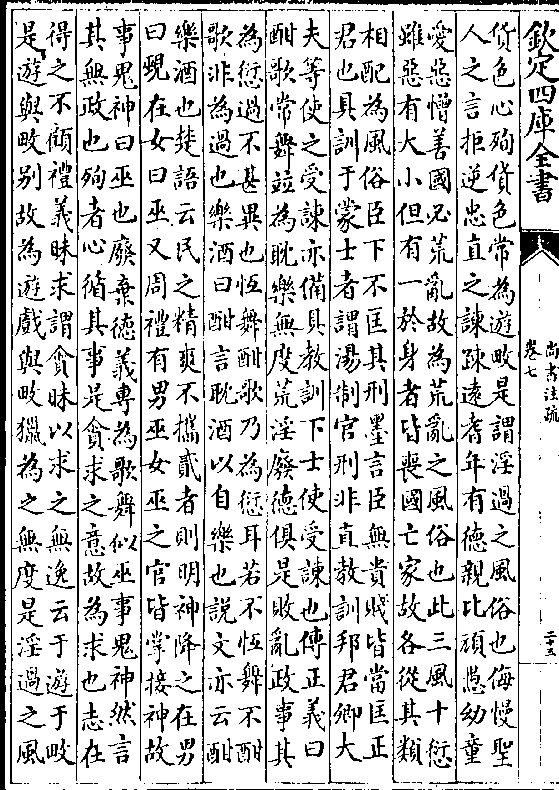 欽定四庫全書
尚書注疏
卷七
二十五
貨色心殉貨色常為遊畋是謂淫過之風俗也侮慢聖
人之言拒逆忠直之諫疎遠耆年有德親比頑愚幼童
愛惡憎善國必荒亂故為荒亂之風俗也此三風十愆
雖惡有大小但有一於身者皆喪國亡家故各從其類
相配為風俗臣下不匡其刑墨言臣無貴賤皆當匡正
君也具訓于蒙士者謂湯制官刑非直教訓邦君卿大
夫等使之受諫亦備具教訓下士使受諫也傳正義曰
酣歌常舞並為耽樂無度荒淫廢德俱是敗亂政事其
為愆過不甚異也恆舞酣歌乃為愆耳若不恆舞不酣
歌非為過也樂酒曰酣言耽酒以自樂也說文亦云酣
樂酒也楚語云民之精爽不攜貳者則明神降之在男
曰覡在女曰巫又周禮有男巫女巫之官皆掌接神故
事鬼神曰巫也廢棄德義專為歌舞似巫事鬼神然言
其無政也殉者心循其事是貪求之意故為求也志在
得之不顧禮義昧求謂貪昧以求之無逸云于遊于畋
是遊與畋別故為遊戲與畋獵為之無度是淫過之風